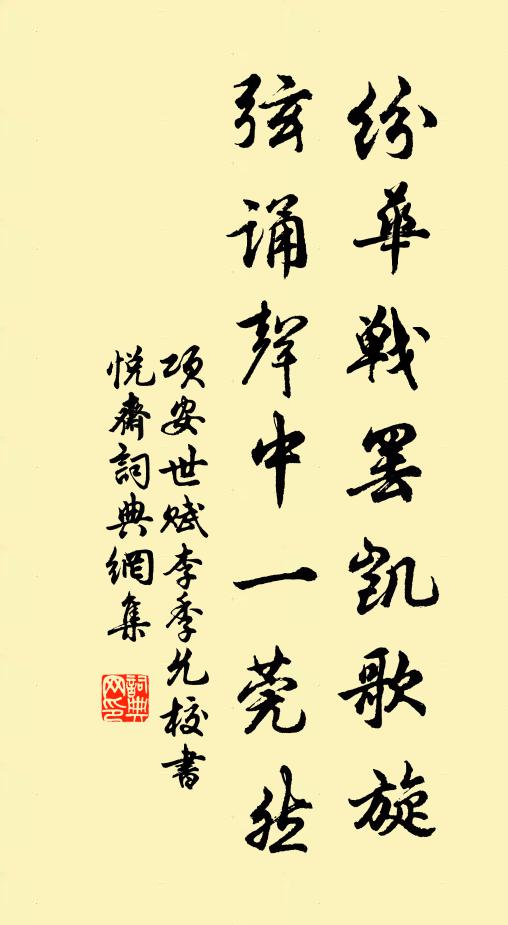 紛華戰罷凱歌旋
弦誦聲中一莞然
項安世賦李季允校書
悅齋詞典網集
詞典网印